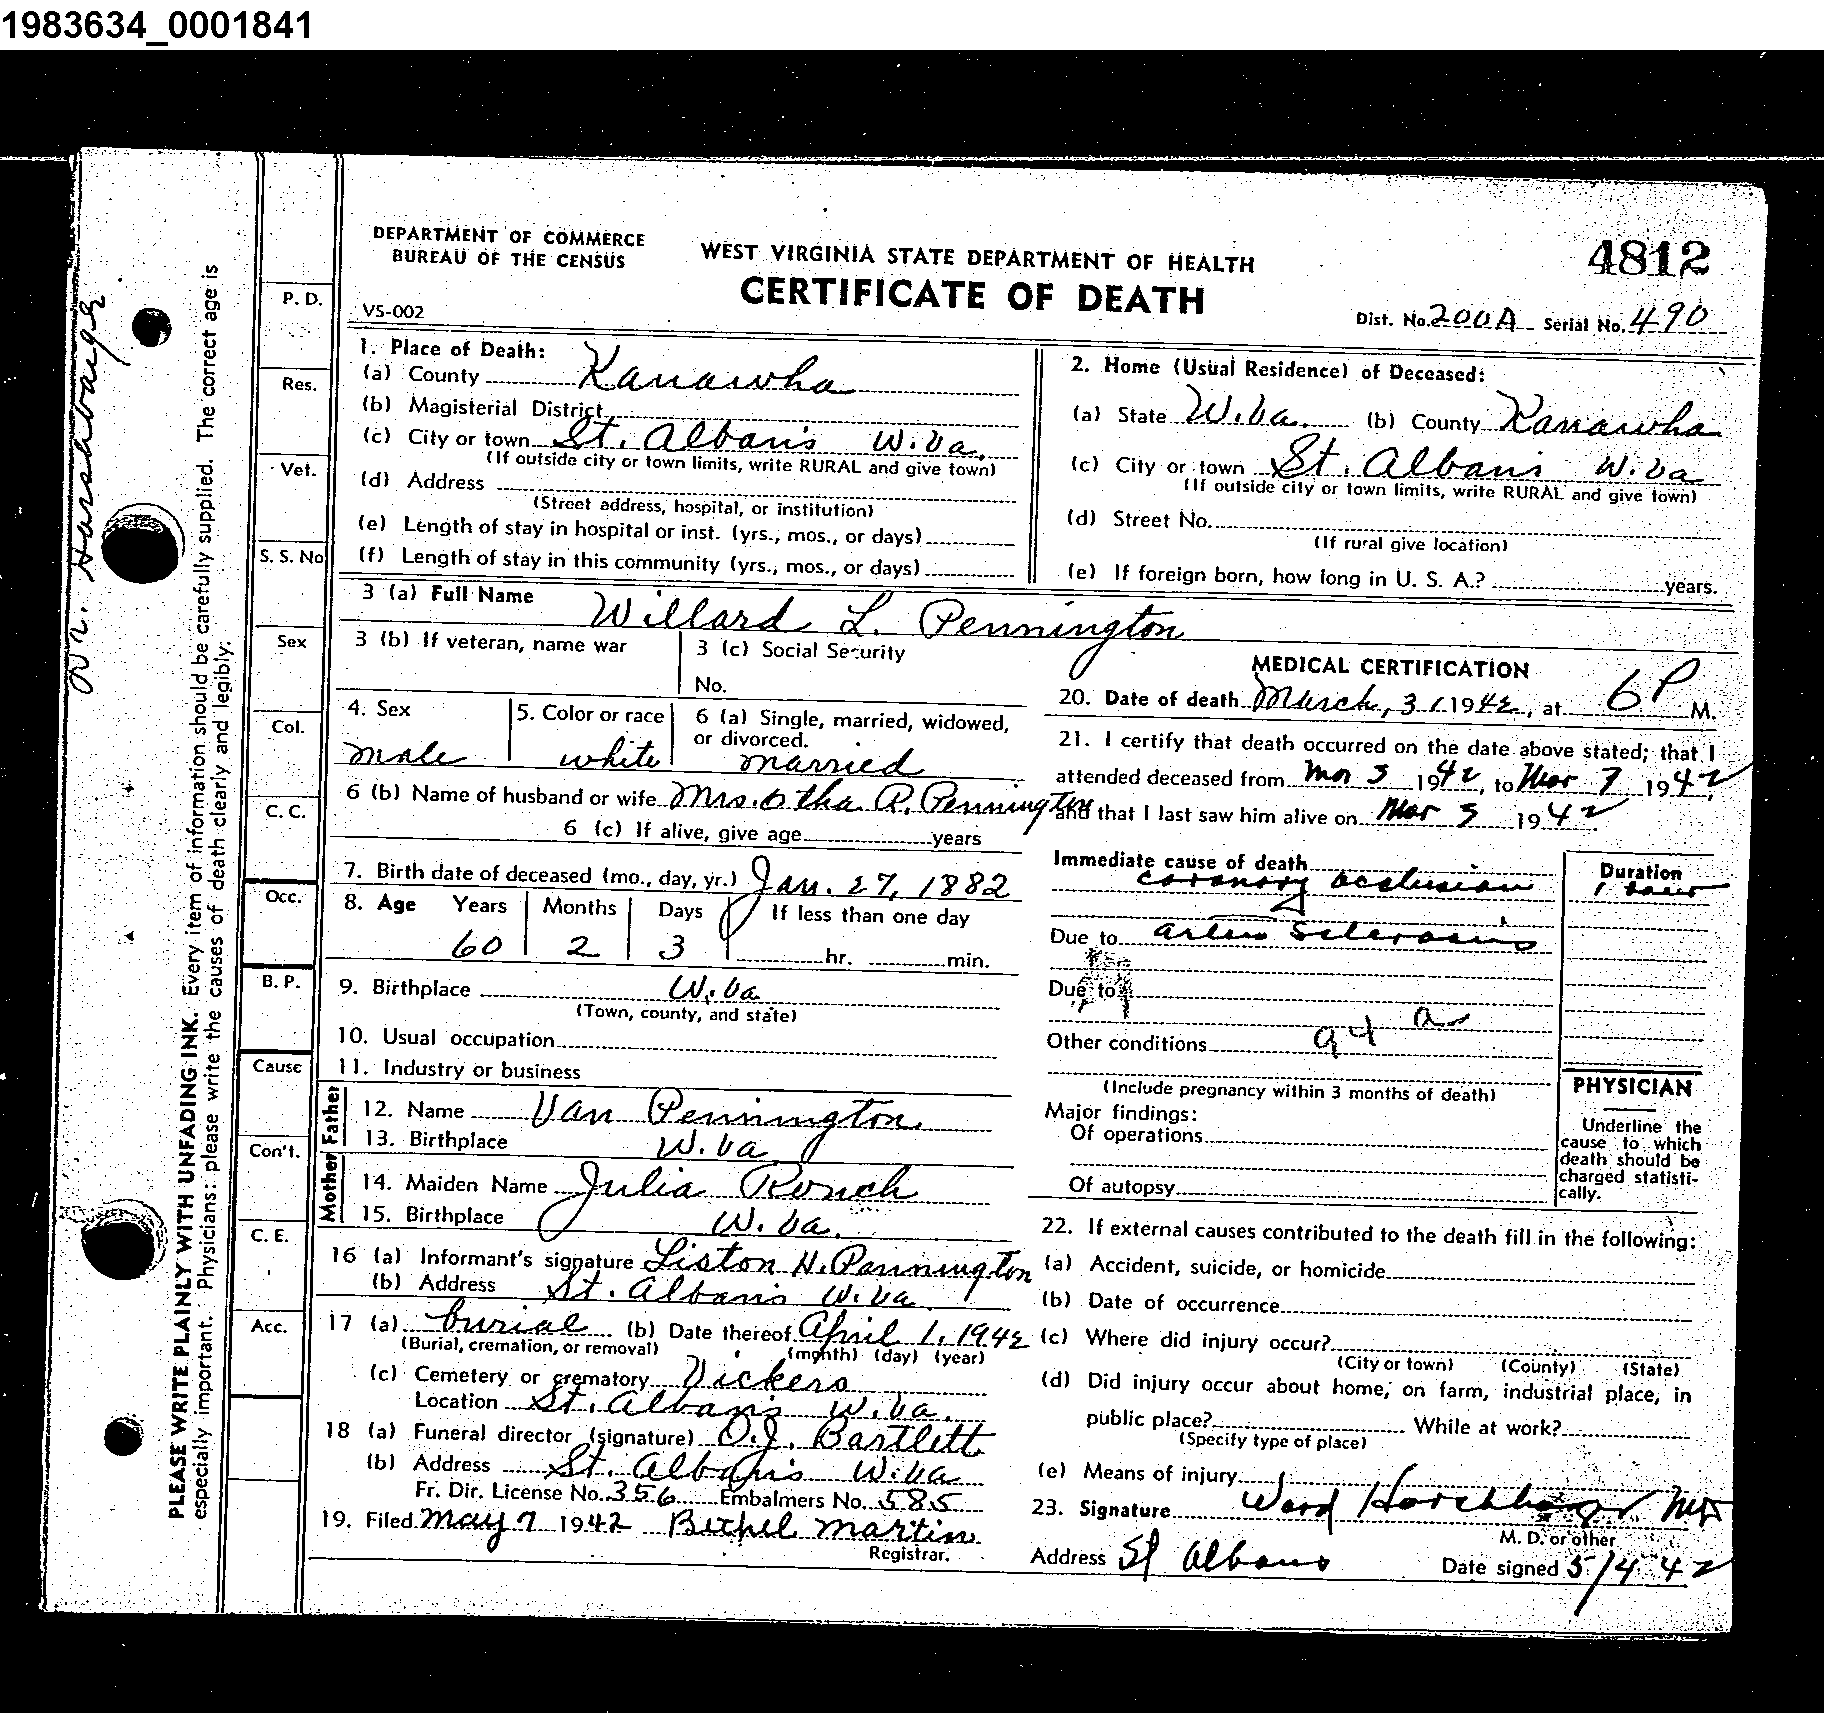 1983634_0001841
DEPARTMENT OF COMMERCE
BUREAU OF THE CENSUS
WEST VIRGINIA STATE DEPARTMENT OF HEALTH
CERTIFICATE OF DEATH
4812
VS-002
Dist. No. 200A Serial No. 490
Dr. Harshbarger
PLEASE WRITE PLAINLY WITH UNFADING INK. Every item of information should be carefully supplied. The correct age is
especially important. Physicians: please write the causes of death clearly and legibly.
P. D.
Res.
Vet.
S. S. No
Sex
Col.
C. C.
Occ.
B. P.
Cause
Con't.
C. E.
Acc.
1. Place of Death:
(a) County Kanawha
(b) Magisterial District
(c) City or town St. Albans W.Va.
(If outside city or town limits, write RURAL and give town)
(d) Address
(Street address, hospital, or institution)
(e) Length of stay in hospital or inst. (yrs., mos., or days)
(f) Length of stay in this community (yrs., mos., or days)
2. Home (Usual Residence) of Deceased:
(a) State W.Va. (b) County Kanawha
(c) City or town St. Albans W.Va
(If outside city or town limits, write RURAL and give town)
(d) Street No.
(If rural give location)
(e) If foreign born, how long in U. S. A.? years.
3 (a) Full Name Willard L. Pennington
3 (b) If veteran, name war
3 (c) Social Security
No.
4. Sex
male
5. Color or race
white
6 (a) Single, married, widowed,
or divorced.
married
6 (b) Name of husband or wife Mrs. Otha R. Pennington
6 (c) If alive, give age years
7. Birth date of deceased (mo., day, yr.) Jan. 27, 1882
8. Age Years Months Days If less than one day
60 2 3 hr. min.
9. Birthplace W.Va
(Town, county, and state)
10. Usual occupation
11. Industry or business
Father
12. Name Van Pennington
13. Birthplace W.Va
Mother
14. Maiden Name Julia Ronch
15. Birthplace W.Va.
16 (a) Informant's signature Liston H. Pennington
(b) Address St. Albans W.Va.
17 (a) burial (b) Date thereof April 1, 1942
(Burial, cremation, or removal) (month) (day) (year)
(c) Cemetery or crematory Vickers
Location St. Albans W.Va.
18 (a) Funeral director (signature) O.J. Bartlett
(b) Address St. Albans W.Va
Fr. Dir. License No. 356 Embalmers No. 585
19. Filed May 7 1942 Bethel Martin
Registrar.
MEDICAL CERTIFICATION
20. Date of death March, 31 1942, at 6P M.
21. I certify that death occurred on the date above stated; that I
attended deceased from Mar 3 1942, to Mar 7 1942
and that I last saw him alive on Mar 3 1942
Immediate cause of death
coronary occlusion
Duration
1 hour
Due to arterio Sclerosis
Due to
94 a
Other conditions
(Include pregnancy within 3 months of death)
Major findings:
Of operations
Of autopsy
PHYSICIAN
Underline the
cause to which
death should be
charged statisti-
cally.
22. If external causes contributed to the death fill in the following:
(a) Accident, suicide, or homicide
(b) Date of occurrence
(c) Where did injury occur?
(City or town) (County) (State)
(d) Did injury occur about home, on farm, industrial place, in
public place? While at work?
(Specify type of place)
(e) Means of injury
23. Signature Ward Harshbarger MD
M. D. or other
Address St Albans Date signed 5/4 42